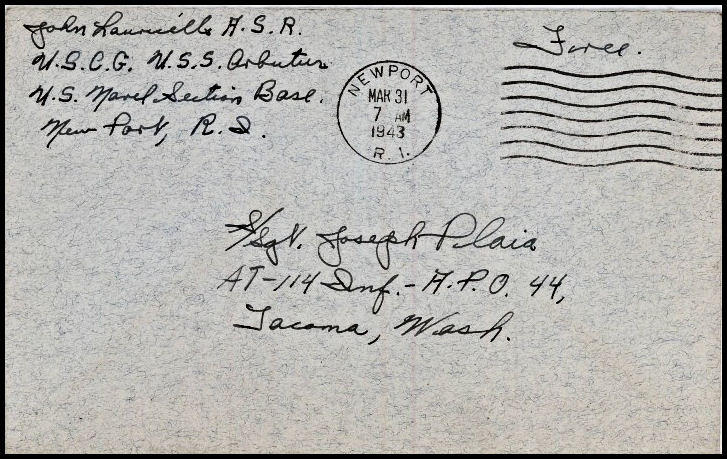 John Lauricella A.S.R.
U.S.C.G. U.S.S. Arbutus
U.S. Navel Section Base.
New Port, R.I.
Free.
NEWPORT
MAR 31
7 AM
1943
R. I.
S/Sgt. Joseph Plaia
AT-114 Inf.- A.P.O. 44,
Tacoma, Wash.